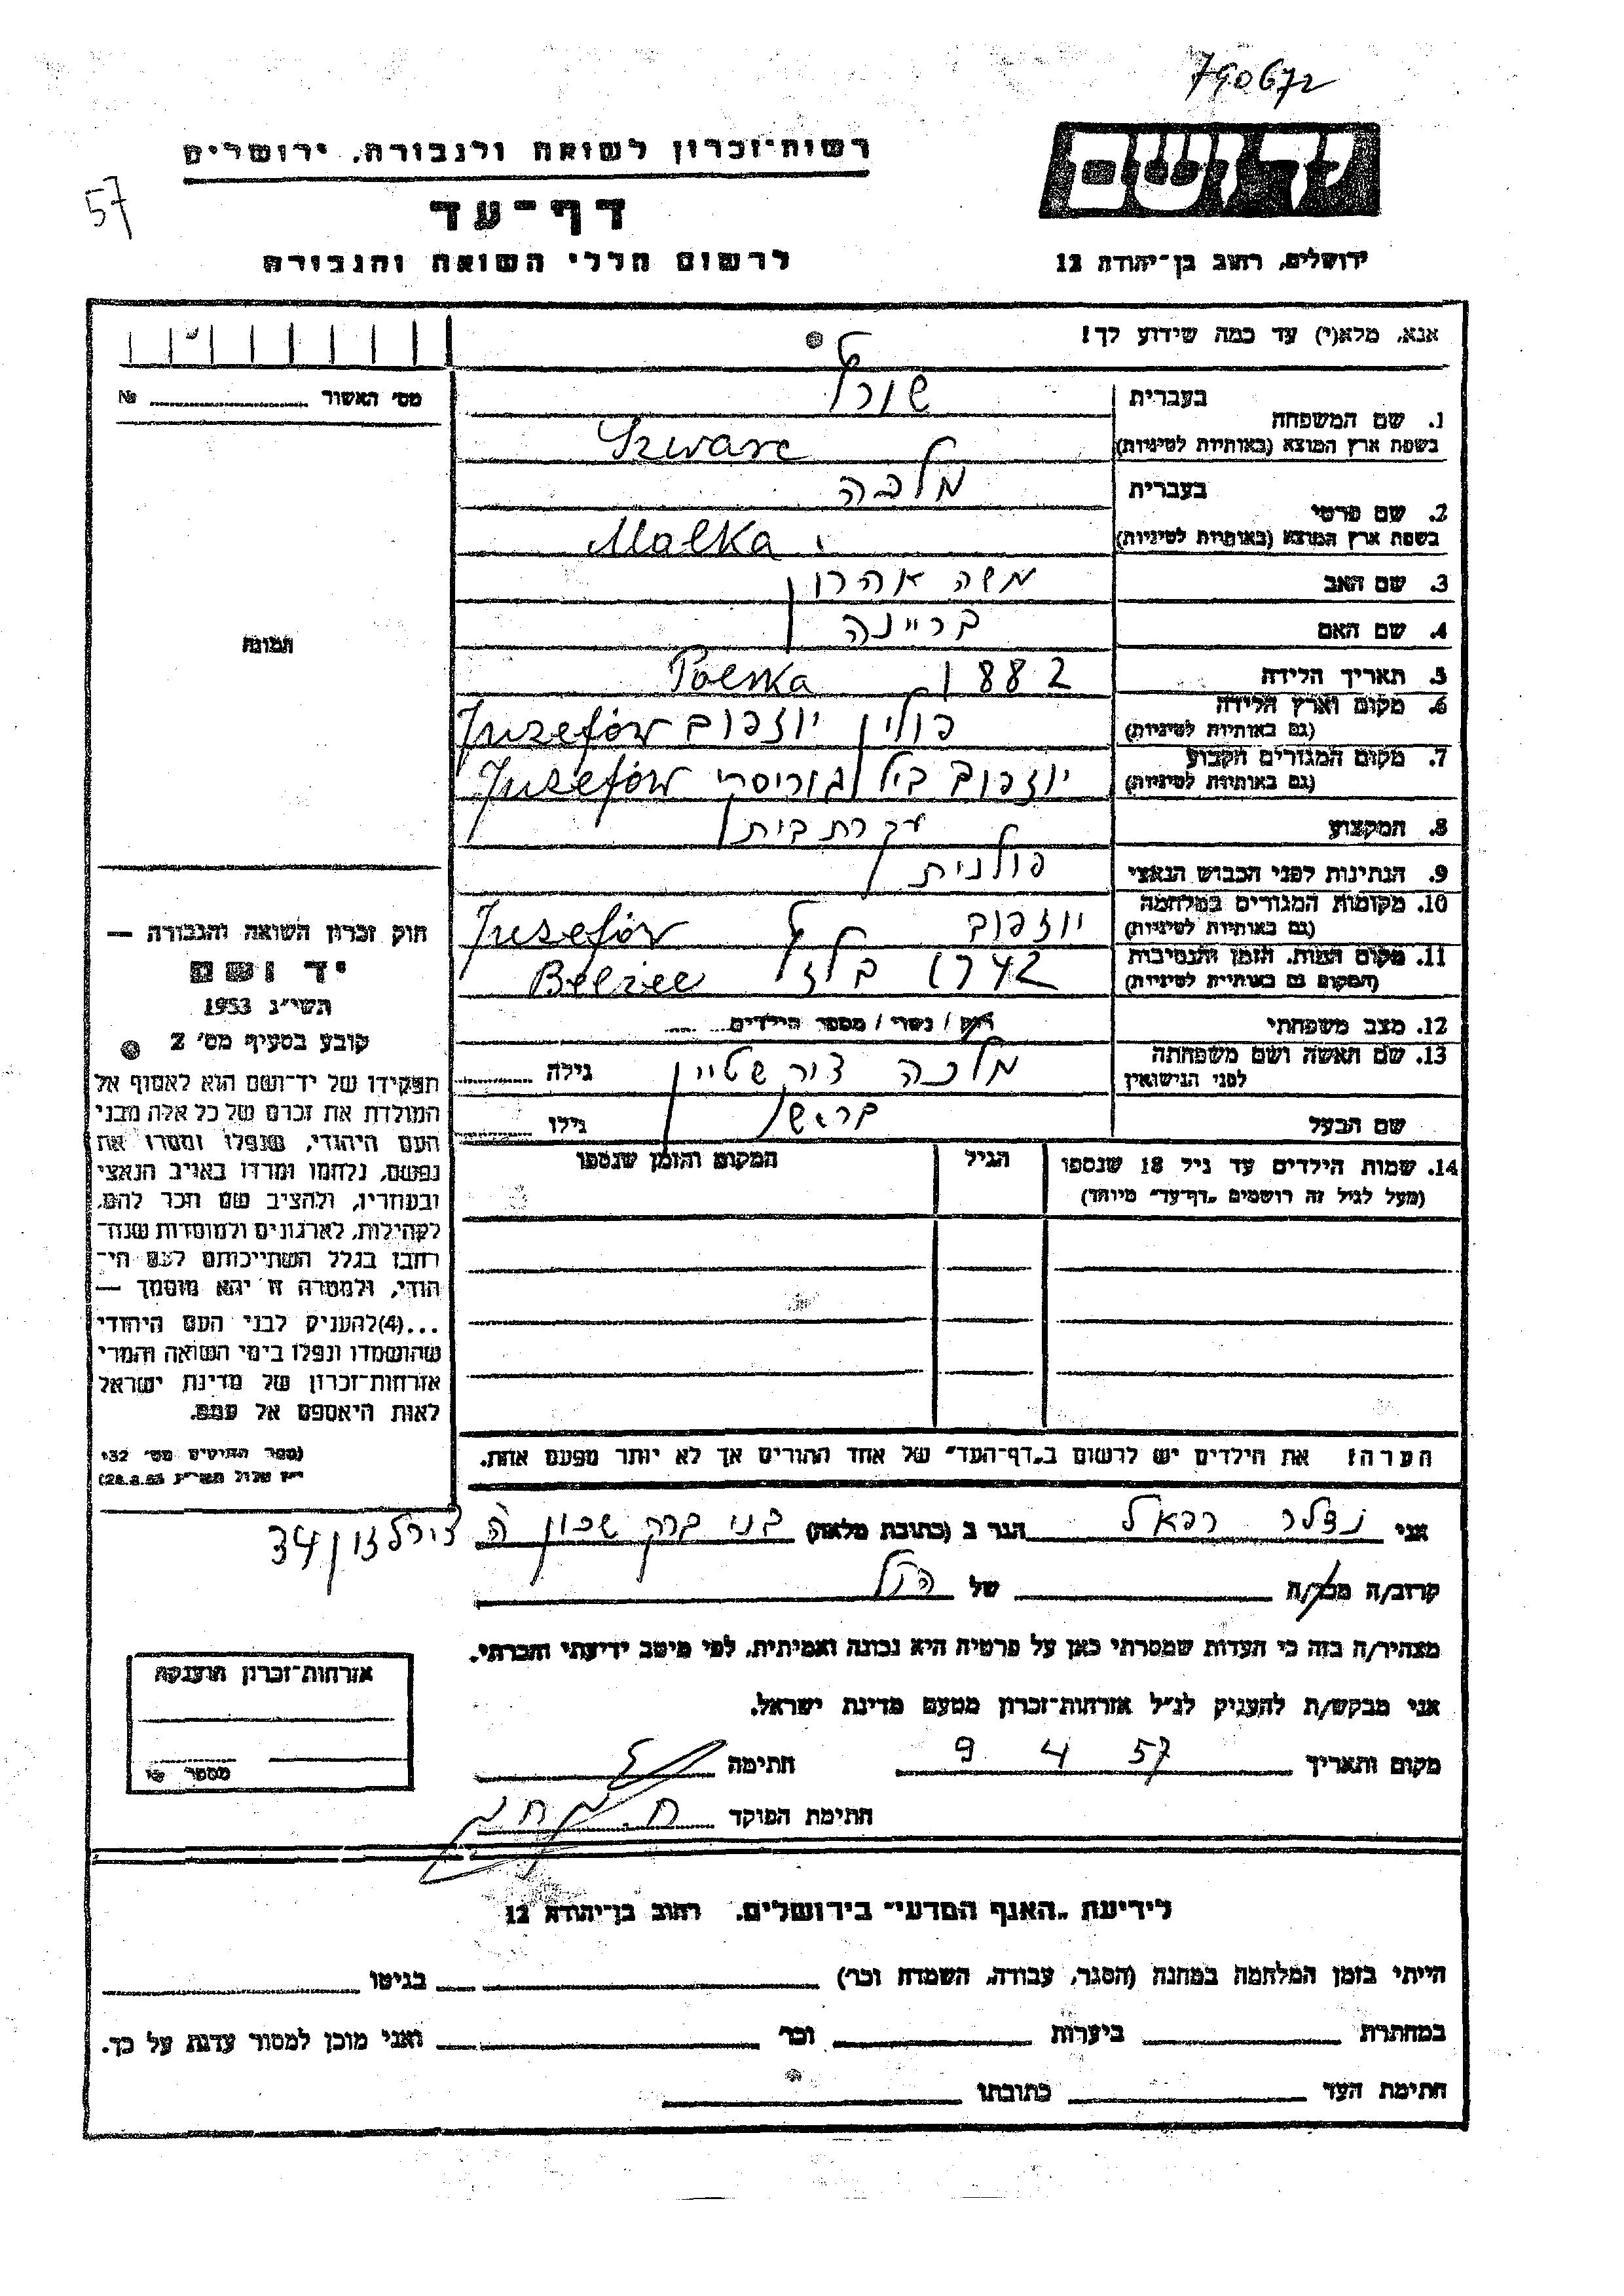 790672
יד ושם
רשות־זכרון לשואה ולגבורה, ירושלים
57
דף־עד
לרשום חללי השואה והגבורה
ירושלים, רחוב בן־יהודה 12
אנא, מלא(י) עד כמה שידוע לך!
מס׳ האשור № ........
1. שם המשפחה
בעברית
בשפת ארץ המוצא (באותיות לטיניות)
Szwarc
2. שם פרטי
בעברית מלכה
בשפת ארץ המוצא (באותיות לטיניות) Malka
3. שם האב משה אהרון
4. שם האם בריינה
5. תאריך הלידה 1882 Polska
6. מקום וארץ הלידה (גם באותיות לטיניות) פולין יוזפוב Juzefów
7. מקום המגורים הקבוע (גם באותיות לטיניות) יוזפוב בילגוריסקי Juzefów
8. המקצוע עקרת בית
9. הנתינות לפני הכבוש הנאצי פולנית
10. מקומות המגורים במלחמה (גם באותיות לטיניות) יוזפוב Juzefów
11. מקום המות, הזמן והנסיבות (המקום גם באותיות לטיניות) 1942 בלזץ Belzec
12. מצב משפחתי רוק / נשוי / מספר הילדים ........
13. שם האשה ושם משפחתה לפני הנישואין מלכה צורשטיין גילה ........
שם הבעל בריש גילו ........
תמונה
14. שמות הילדים עד גיל 18 שנספו
(מעל לגיל זה רושמים „דף־עד״ מיוחד)
הגיל
המקום והזמן שנספו
חוק זכרון השואה והגבורה —
יד ושם
תשי״ג 1953
קובע בסעיף מס׳ 2
תפקידו של יד־ושם הוא לאסוף אל
המולדת את זכרם של כל אלה מבני
העם היהודי, שנפלו ומסרו את
נפשם, נלחמו ומרדו באויב הנאצי
ובעוזריו, ולהציב שם וזכר להם,
לקהילות, לארגונים ולמוסדות שנח־
רבו בגלל השתייכותם לעם הי־
הודי, ולמטרה זו יהא מוסמך —
...(4)להעניק לבני העם היהודי
שהושמדו ונפלו בימי השואה והמרי
אזרחות־זכרון של מדינת ישראל
לאות היאספם אל עמם.
(ספר החוקים מס׳ 132
י״ז אלול תשי״ג 28.8.53)
הערה: את הילדים יש לרשום ב„דף־העד״ של אחד ההורים אך לא יותר מפעם אחת.
אני נדלר רפאל הגר ב (כתובת מלאה) בני ברק שכון ה 34
קרוב/ה מכר/ה של הנ״ל
מצהיר/ה בזה כי העדות שמסרתי כאן על פרטיה היא נכונה ואמיתית, לפי מיטב ידיעתי והכרתי.
אני מבקש/ת להעניק לנ״ל אזרחות־זכרון מטעם מדינת ישראל.
מקום ותאריך 9 4 57 חתימה
חתימת הפוקד
אזרחות־זכרון הוענקה
מספר
לידיעת „האגף המדעי״ בירושלים, רחוב בן־יהודה 12
הייתי בזמן המלחמה במחנה (הסגר, עבודה, השמדה וכו׳) בגיטו
במחתרת ביערות וכו׳ ואני מוכן למסור עדות על כך.
חתימת העד כתובתו